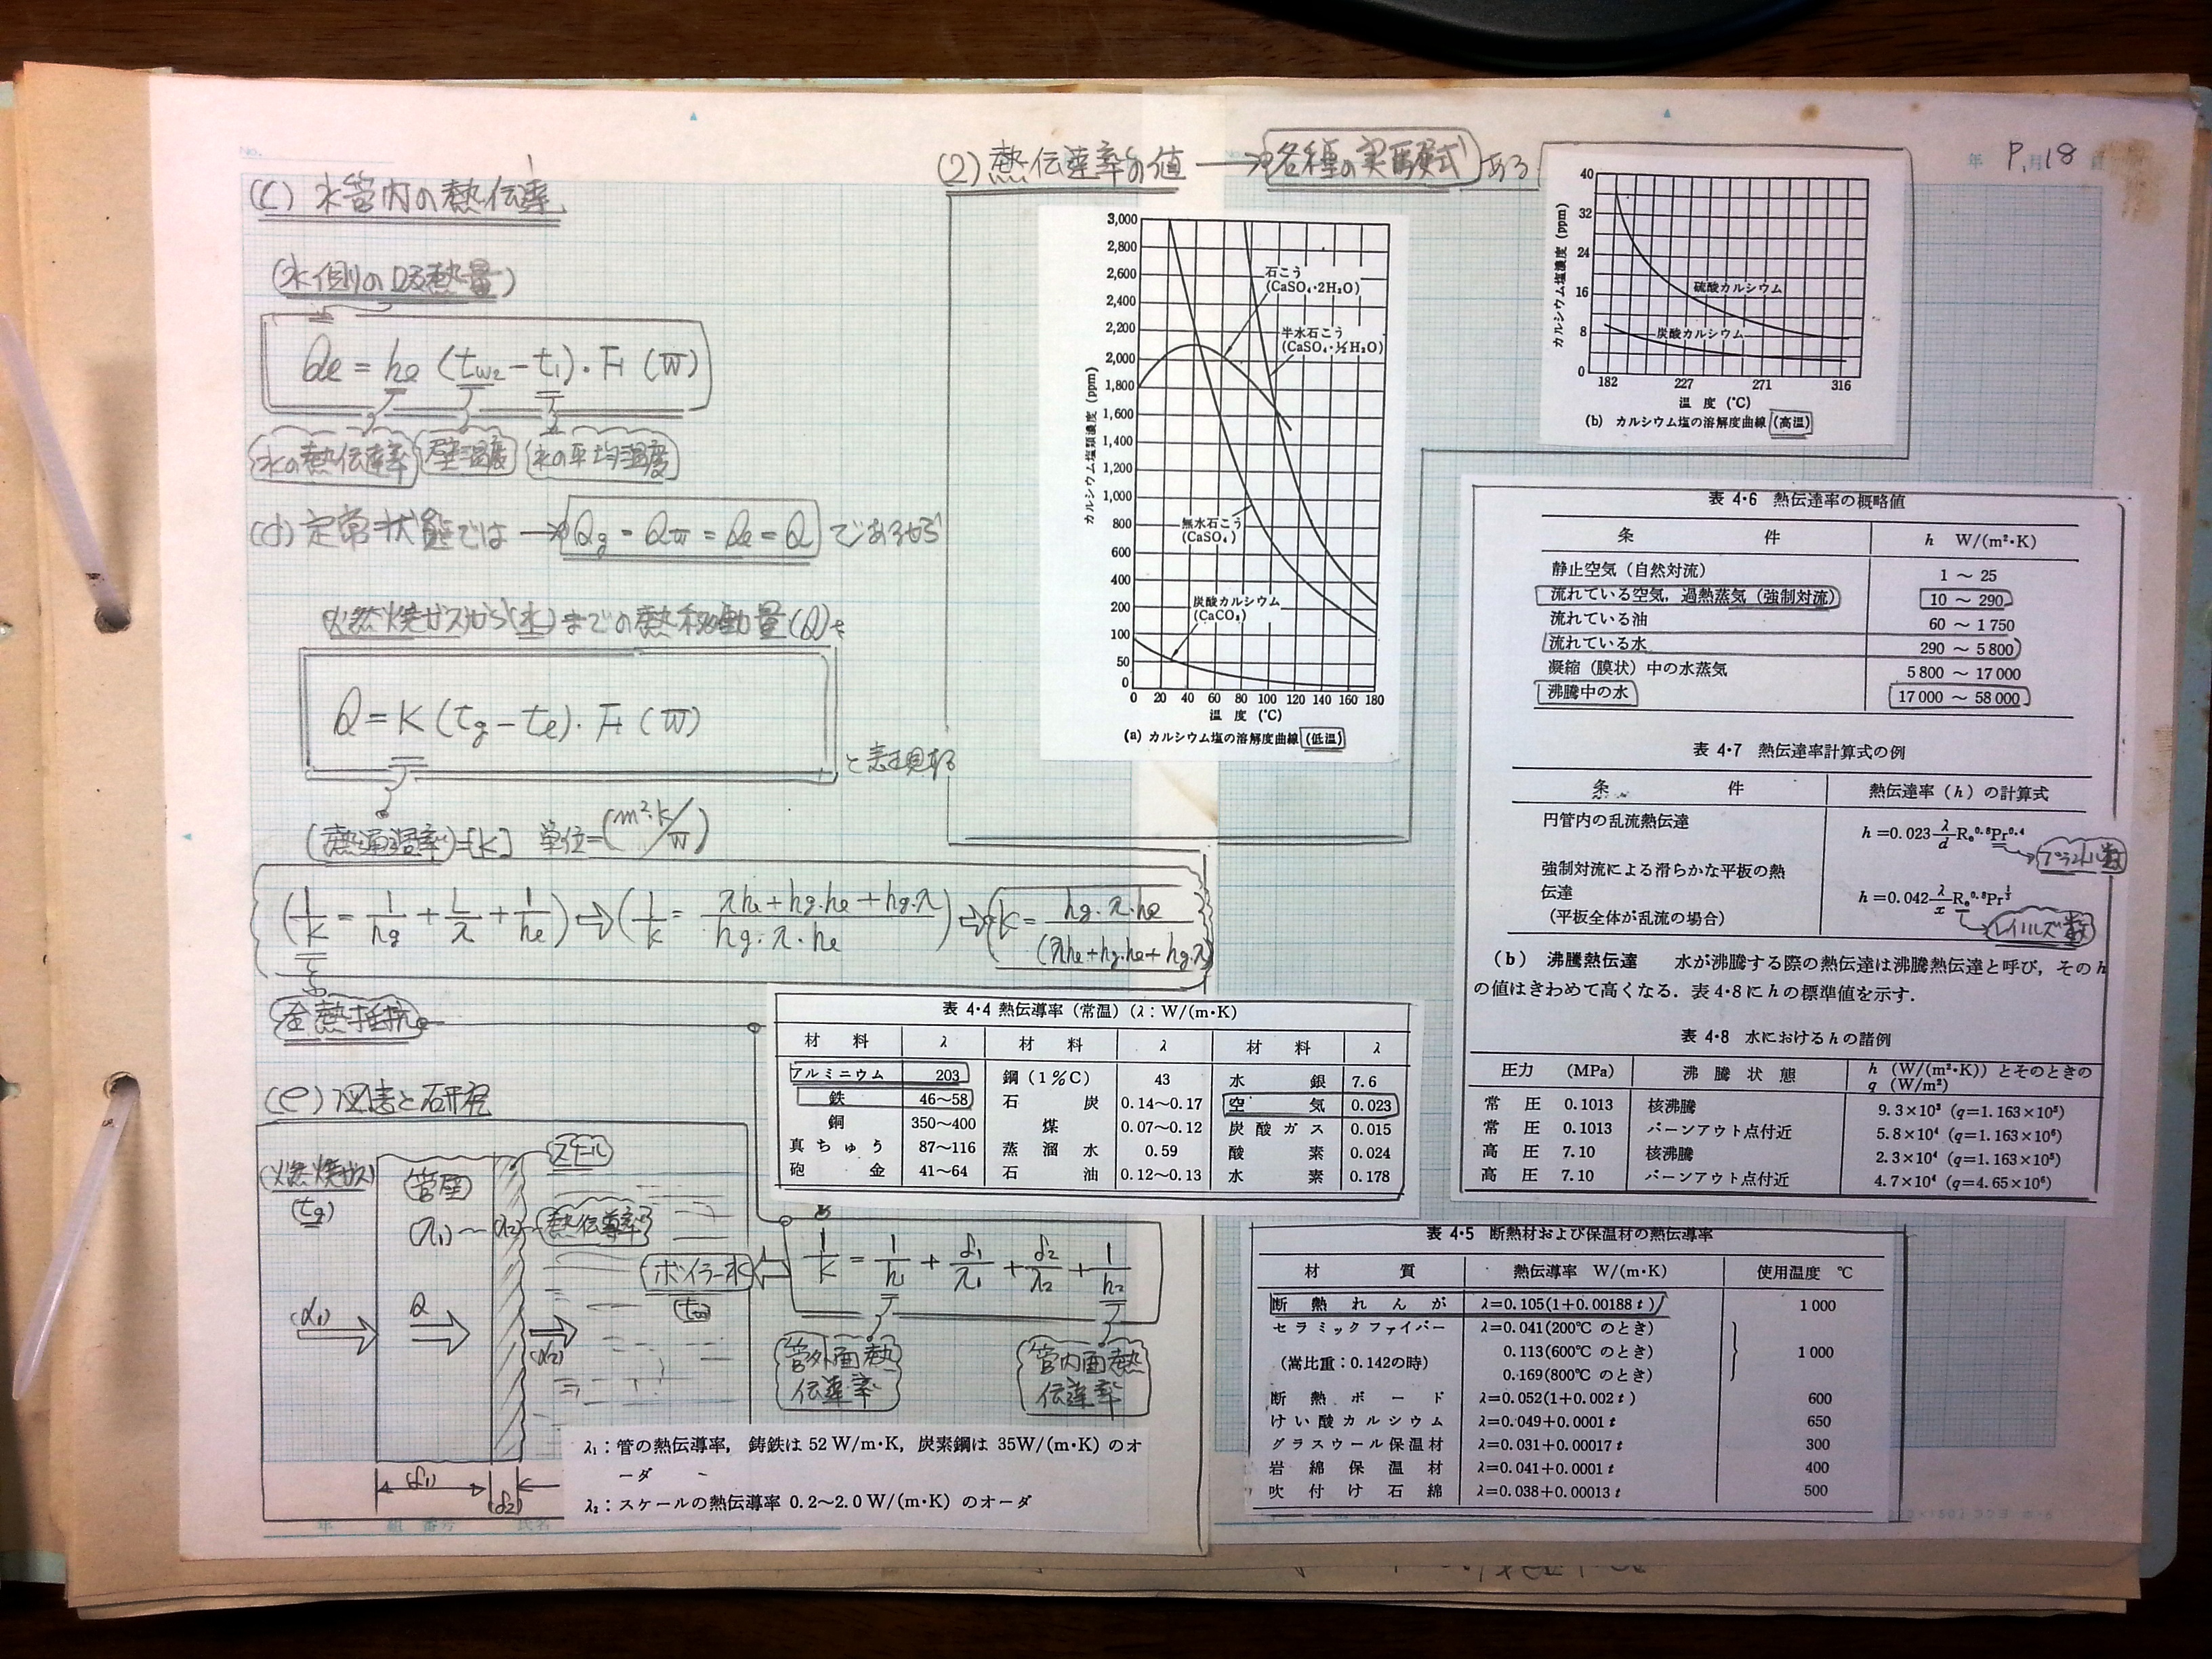 No.
(c) 水管内の熱伝達
(水側の吸熱量)
Qe = he (tw₂ − t₁)・F (W)
水の熱伝達率 壁温度 水の平均温度
(d) 定常状態では → Qg = Qw = Qe = Q であるから
燃焼ガスから(水)までの熱移動量(Q)を
Q = K (tg − te)・F (W)
と表現する
(熱通過率)=[K] 単位=(m²・k/W)
(1/K = 1/hg + L/λ + 1/he) ⇨ (1/K = λhe+hg・he+hg・λ / hg・λ・he) ⇨ (K = hg・λ・he / (λhe+hg・he+hg・λ))
全熱抵抗
(e) 図表と研究
燃焼ガス
(tg)
(管壁)
スケール
(λ₁) ~ (λ₂)
熱伝導率
ボイラー水
(tw)
(α₁)
Q
(α₂)
(δ₁)
(δ₂)
1/K = 1/h₁ + δ₁/λ₁ + δ₂/λ₂ + 1/h₂
管外面熱伝達率
管内面熱伝達率
λ₁：管の熱伝導率, 鋳鉄は 52 W/m・K, 炭素鋼は 35W/(m・K) のオ
ーダ
λ₂：スケールの熱伝導率 0.2～2.0 W/(m・K) のオーダ
年 組 番号 氏名
(2) 熱伝達率の値 → 各種の実験式 ある
年 P.月18 日
3,000
2,800
2,600
2,400
2,200
2,000
1,800
1,600
1,400
1,200
1,000
800
600
400
200
100
50
0
カルシウム塩類濃度 (ppm)
石こう
(CaSO₄・2H₂O)
半水石こう
(CaSO₄・½H₂O)
無水石こう
(CaSO₄)
炭酸カルシウム
(CaCO₃)
0 20 40 60 80 100 120 140 160 180
温 度 (℃)
(a) カルシウム塩の溶解度曲線 (低温)
40
32
24
16
8
0
カルシウム塩濃度 (ppm)
硫酸カルシウム
炭酸カルシウム
182 227 271 316
温 度 (℃)
(b) カルシウム塩の溶解度曲線 (高温)
表 4・6 熱伝達率の概略値
条 件 h W/(m²・K)
静止空気（自然対流） 1 ～ 25
流れている空気, 過熱蒸気（強制対流） 10 ～ 290
流れている油 60 ～ 1 750
流れている水 290 ～ 5 800
凝縮（膜状）中の水蒸気 5 800 ～ 17 000
沸騰中の水 17 000 ～ 58 000
表 4・7 熱伝達率計算式の例
条 件 熱伝達率（h）の計算式
円管内の乱流熱伝達 h = 0.023 λ/d Re⁰·⁸Pr⁰·⁴
プラントル数
強制対流による滑らかな平板の熱
伝達
（平板全体が乱流の場合） h = 0.042 λ/x Re⁰·⁸Pr^⅓
レイノルズ数
（b） 沸騰熱伝達 水が沸騰する際の熱伝達は沸騰熱伝達と呼び, その h
の値はきわめて高くなる. 表 4・8 に h の標準値を示す.
表 4・8 水における h の諸例
圧力 (MPa) 沸 騰 状 態 h (W/(m²・K)) とそのときの q (W/m²)
常 圧 0.1013 核沸騰 9.3×10³ (q=1.163×10⁵)
常 圧 0.1013 バーンアウト点付近 5.8×10⁴ (q=1.163×10⁶)
高 圧 7.10 核沸騰 2.3×10⁴ (q=1.163×10⁵)
高 圧 7.10 バーンアウト点付近 4.7×10⁴ (q=4.65×10⁶)
表 4・4 熱伝導率（常温）(λ：W/(m・K)
材 料 λ 材 料 λ 材 料 λ
アルミニウム 203 鋼（1％C） 43 水 銀 7.6
鉄 46～58 石 炭 0.14～0.17 空 気 0.023
銅 350～400 煤 0.07～0.12 炭 酸 ガ ス 0.015
真 ち ゅ う 87～116 蒸 溜 水 0.59 酸 素 0.024
砲 金 41～64 石 油 0.12～0.13 水 素 0.178
表 4・5 断熱材および保温材の熱伝導率
材 質 熱伝導率 W/(m・K) 使用温度 ℃
断 熱 れ ん が λ=0.105(1+0.00188 t) 1 000
セ ラ ミ ッ ク フ ァ イ バ ー λ=0.041(200℃ のとき)
0.113(600℃ のとき) 1 000
（嵩比重：0.142の時） 0.169(800℃ のとき)
断 熱 ボ ー ド λ=0.052(1+0.002 t) 600
け い 酸 カ ル シ ウ ム λ=0.049+0.0001 t 650
グ ラ ス ウ ー ル 保 温 材 λ=0.031+0.00017 t 300
岩 綿 保 温 材 λ=0.041+0.0001 t 400
吹 付 け 石 綿 λ=0.038+0.00013 t 500